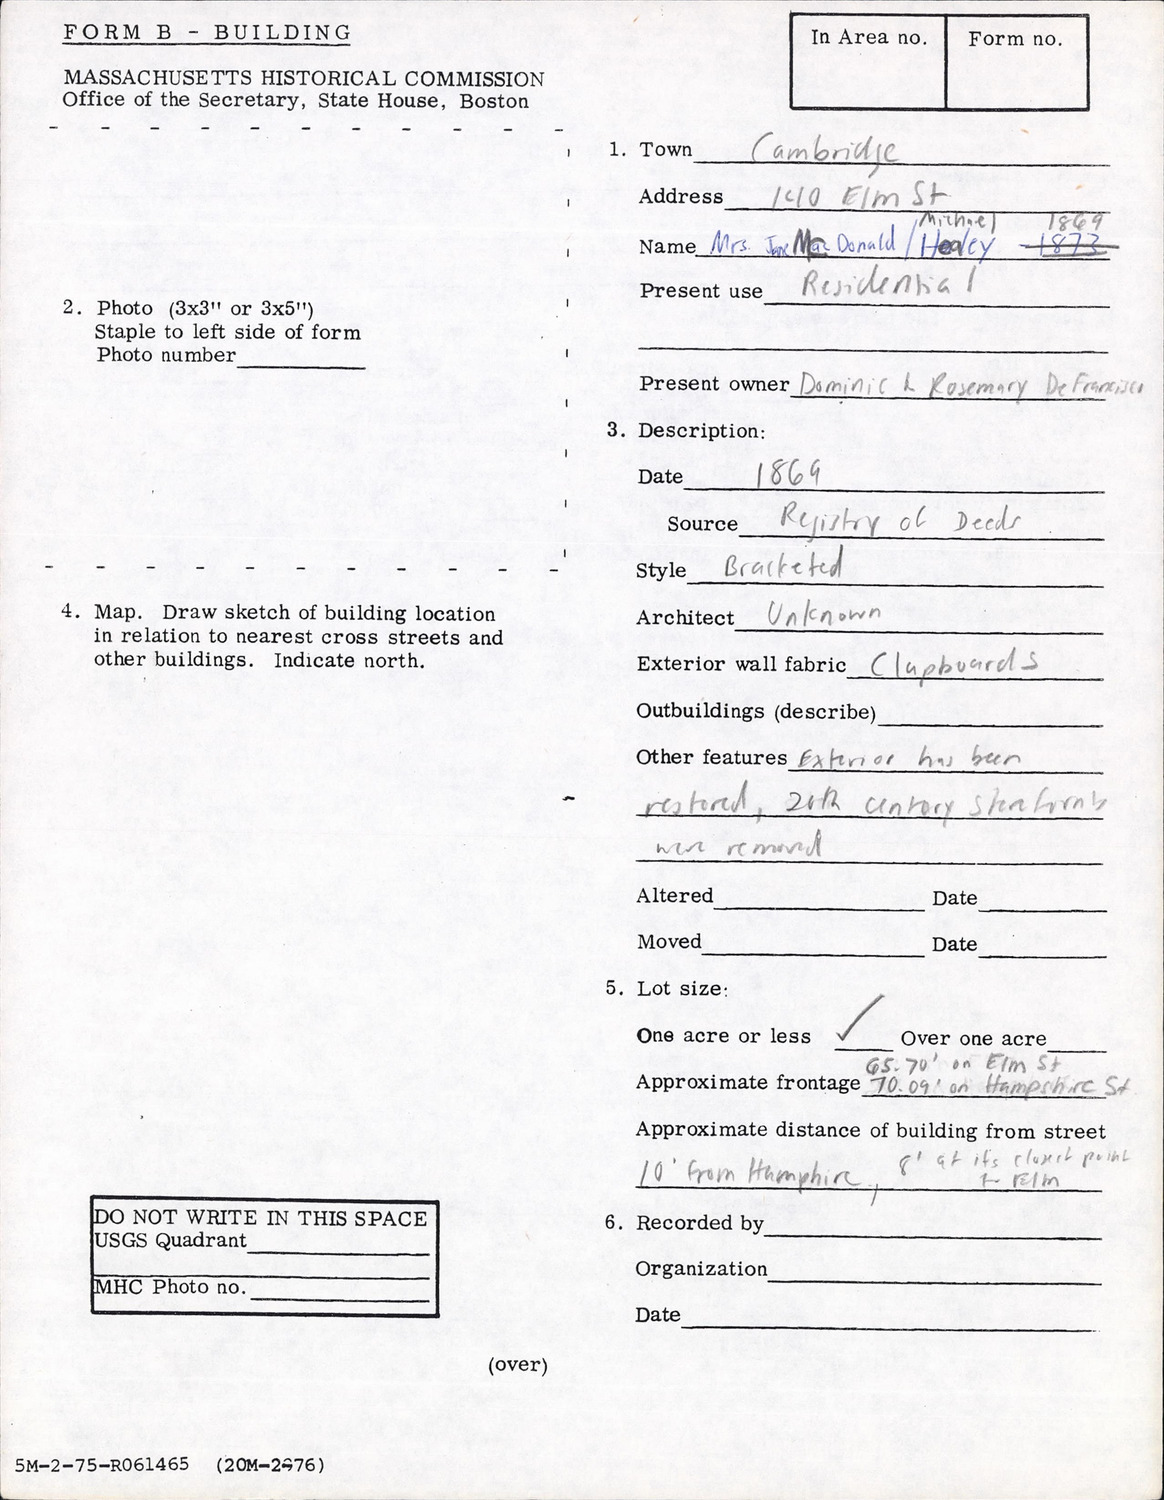 FORM B - BUILDING
MASSACHUSETTS HISTORICAL COMMISSION
Office of the Secretary, State House, Boston
In Area no.
Form no.
1. Town Cambridge
Address 140 Elm St
Michael 1869
Name Mrs. Jane MacDonald / Healey 1873
Present use Residential
Present owner Dominic & Rosemary DeFrancisco
2. Photo (3x3" or 3x5")
Staple to left side of form
Photo number
3. Description:
Date 1869
Source Registry of Deeds
Style Bracketed
Architect Unknown
Exterior wall fabric Clapboards
Outbuildings (describe)
Other features Exterior has been
restored, 20th century
were removed
Altered Date
Moved Date
4. Map. Draw sketch of building location
in relation to nearest cross streets and
other buildings. Indicate north.
5. Lot size:
One acre or less ✓ Over one acre
65.70' on Elm St
Approximate frontage 70.09' on Hampshire St
Approximate distance of building from street
10' from Hamphire, 8' at its closest point
to Elm
6. Recorded by
Organization
Date
DO NOT WRITE IN THIS SPACE
USGS Quadrant
MHC Photo no.
(over)
5M-2-75-R061465 (20M-2-76)